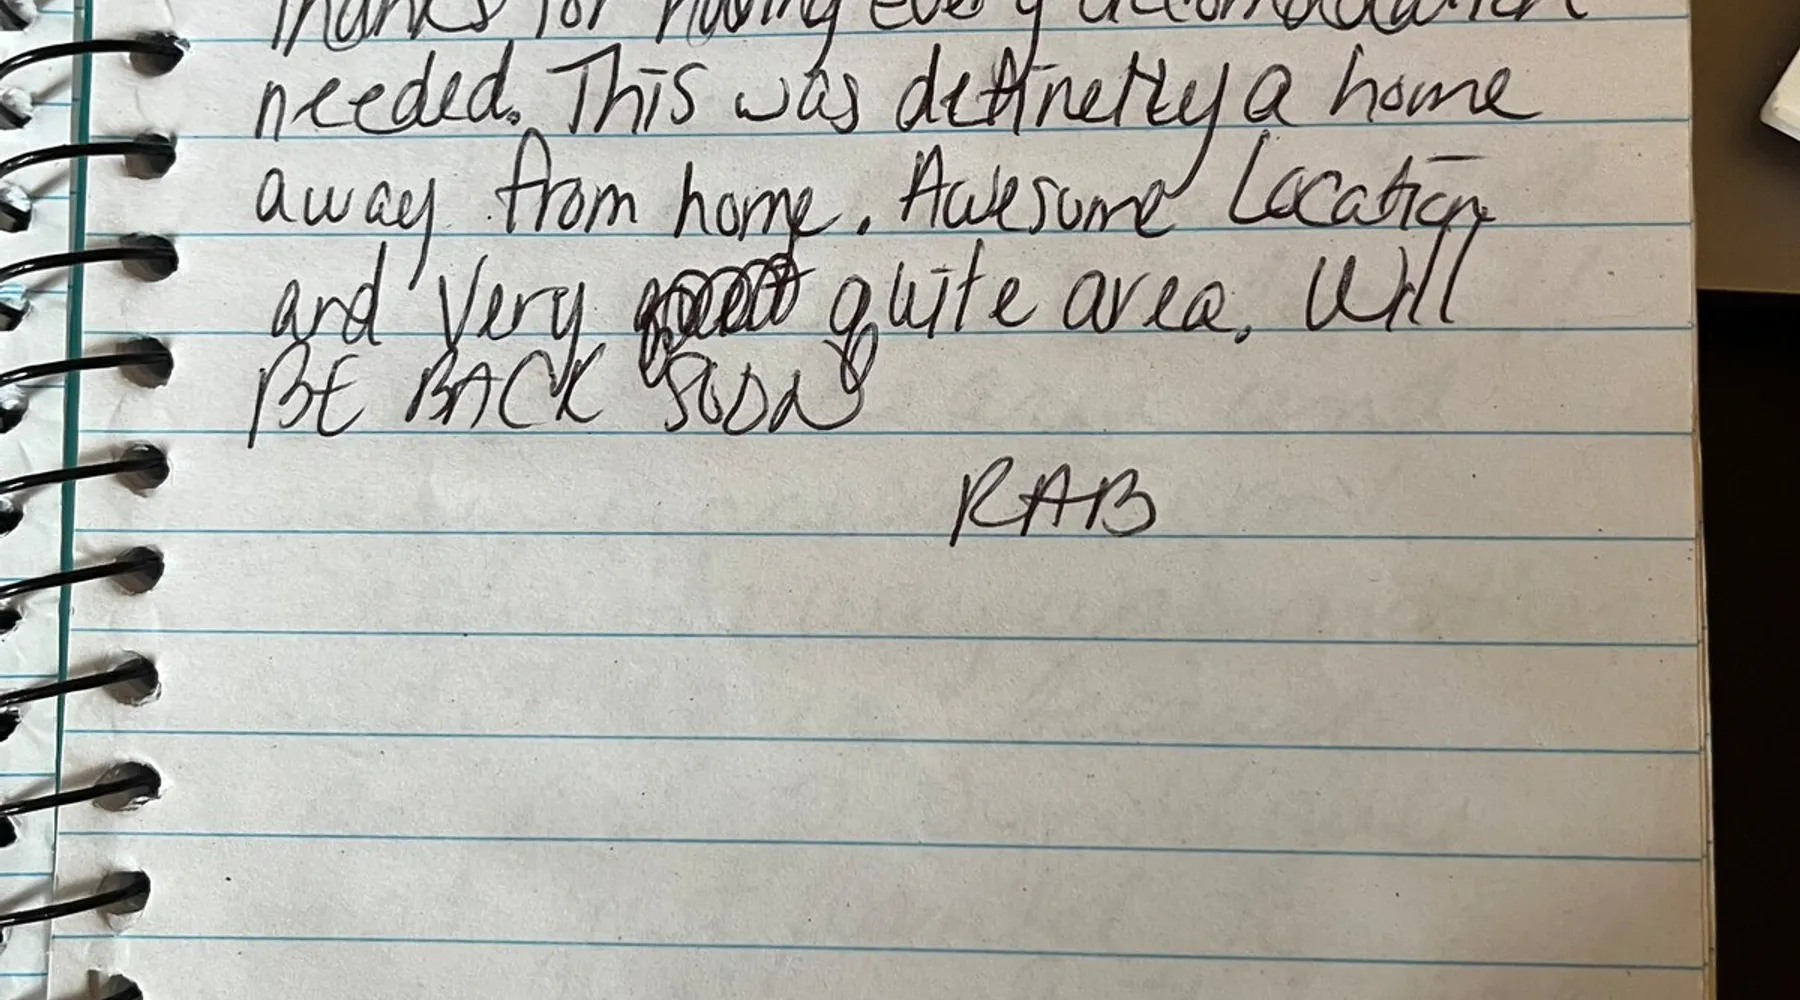 Thanks for having every accomodation
needed. This was definetly a home
away from home. Awesome Location
and very quite area. Will
BE BACK SOON
RAB